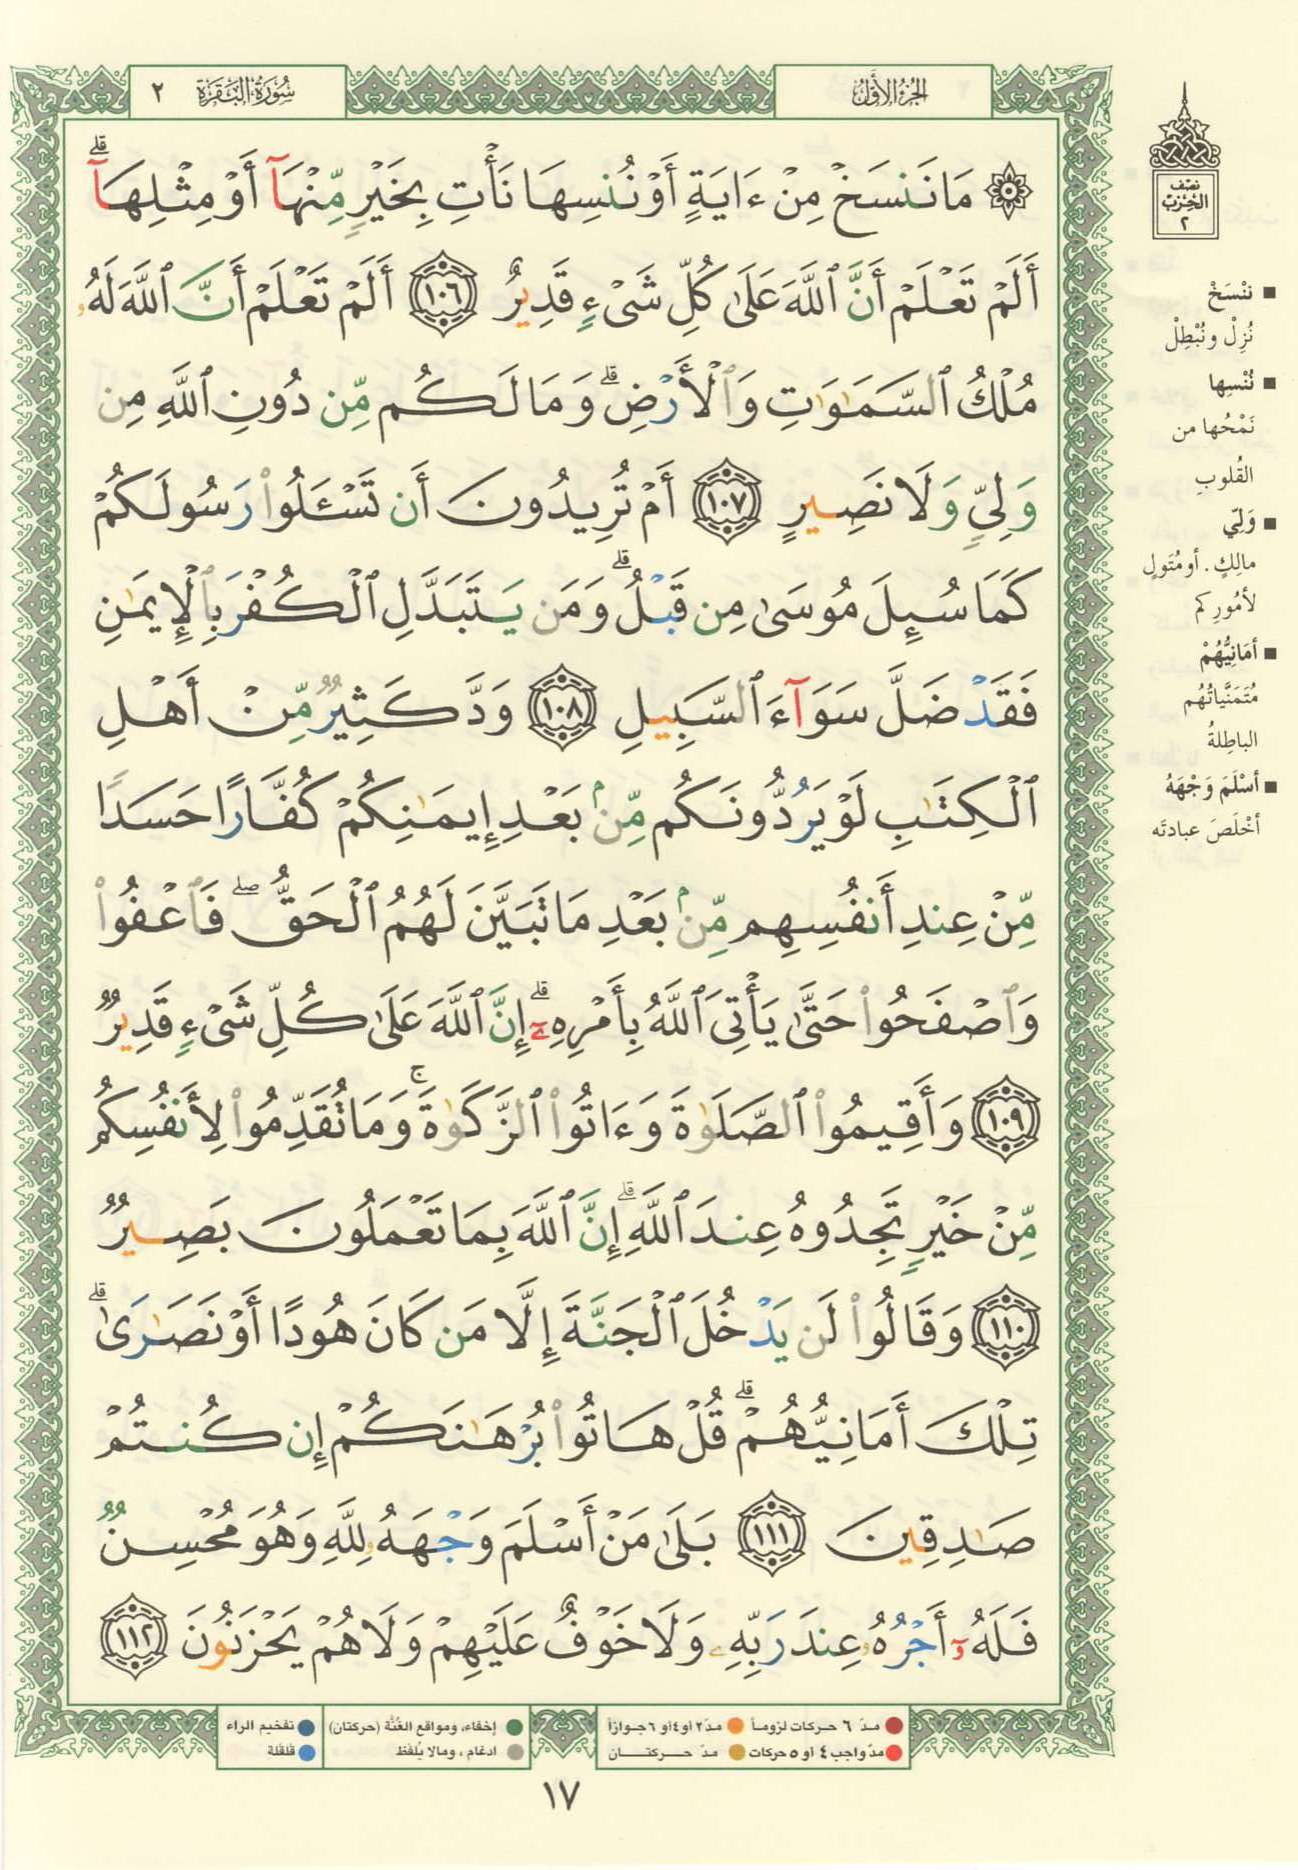 سُورَةُ البَقَرَة ٢
الجُزءُ الأَوَّلُ
نِصْف
الحِزْب
٢
۞ مَا نَنسَخْ مِنْ ءَايَةٍ أَوْ نُنسِهَا نَأْتِ بِخَيْرٍ مِّنْهَآ أَوْ مِثْلِهَآ ۗ
أَلَمْ تَعْلَمْ أَنَّ ٱللَّهَ عَلَىٰ كُلِّ شَىْءٍ قَدِيرٌ ١٠٦ أَلَمْ تَعْلَمْ أَنَّ ٱللَّهَ لَهُۥ
مُلْكُ ٱلسَّمَٰوَٰتِ وَٱلْأَرْضِ ۗ وَمَا لَكُم مِّن دُونِ ٱللَّهِ مِن
وَلِىٍّ وَلَا نَصِيرٍ ١٠٧ أَمْ تُرِيدُونَ أَن تَسْـَٔلُوا۟ رَسُولَكُمْ
كَمَا سُئِلَ مُوسَىٰ مِن قَبْلُ ۗ وَمَن يَتَبَدَّلِ ٱلْكُفْرَ بِٱلْإِيمَٰنِ
فَقَدْ ضَلَّ سَوَآءَ ٱلسَّبِيلِ ١٠٨ وَدَّ كَثِيرٌ مِّنْ أَهْلِ
ٱلْكِتَٰبِ لَوْ يَرُدُّونَكُم مِّنۢ بَعْدِ إِيمَٰنِكُمْ كُفَّارًا حَسَدًا
مِّنْ عِندِ أَنفُسِهِم مِّنۢ بَعْدِ مَا تَبَيَّنَ لَهُمُ ٱلْحَقُّ ۖ فَٱعْفُوا۟
وَٱصْفَحُوا۟ حَتَّىٰ يَأْتِىَ ٱللَّهُ بِأَمْرِهِۦٓ ۗ إِنَّ ٱللَّهَ عَلَىٰ كُلِّ شَىْءٍ قَدِيرٌ
١٠٩ وَأَقِيمُوا۟ ٱلصَّلَوٰةَ وَءَاتُوا۟ ٱلزَّكَوٰةَ ۚ وَمَا تُقَدِّمُوا۟ لِأَنفُسِكُم
مِّنْ خَيْرٍ تَجِدُوهُ عِندَ ٱللَّهِ ۗ إِنَّ ٱللَّهَ بِمَا تَعْمَلُونَ بَصِيرٌ
١١٠ وَقَالُوا۟ لَن يَدْخُلَ ٱلْجَنَّةَ إِلَّا مَن كَانَ هُودًا أَوْ نَصَٰرَىٰ ۗ
تِلْكَ أَمَانِيُّهُمْ ۗ قُلْ هَاتُوا۟ بُرْهَٰنَكُمْ إِن كُنتُمْ
صَٰدِقِينَ ١١١ بَلَىٰ مَنْ أَسْلَمَ وَجْهَهُۥ لِلَّهِ وَهُوَ مُحْسِنٌ
فَلَهُۥٓ أَجْرُهُۥ عِندَ رَبِّهِۦ وَلَا خَوْفٌ عَلَيْهِمْ وَلَا هُمْ يَحْزَنُونَ ١١٢
■ نَنْسَخْ
نُزِلْ ونُبْطِلْ
■ نُنْسِها
نَمْحُها من
القُلوبِ
■ وَلِيّ
مالِكٍ. أو مُتَولٍ
لأمُورِ كم
■ أمَانِيُّهُمْ
مُتَمَنَّياتُهُم
الباطِلةُ
■ أسْلَمَ وَجْهَهُ
أخْلَصَ عبادتَه
مدّ ٦ حركات لزوماً مدّ ٢ أو ٤ أو ٦ جوازاً
مدّ واجب ٤ أو ٥ حركات مدّ حركتان
إخفاء، ومواقع الغُنَّة (حركتان) تفخيم الراء
ادغام، ومالا يُلفَظ قلقلة
١٧